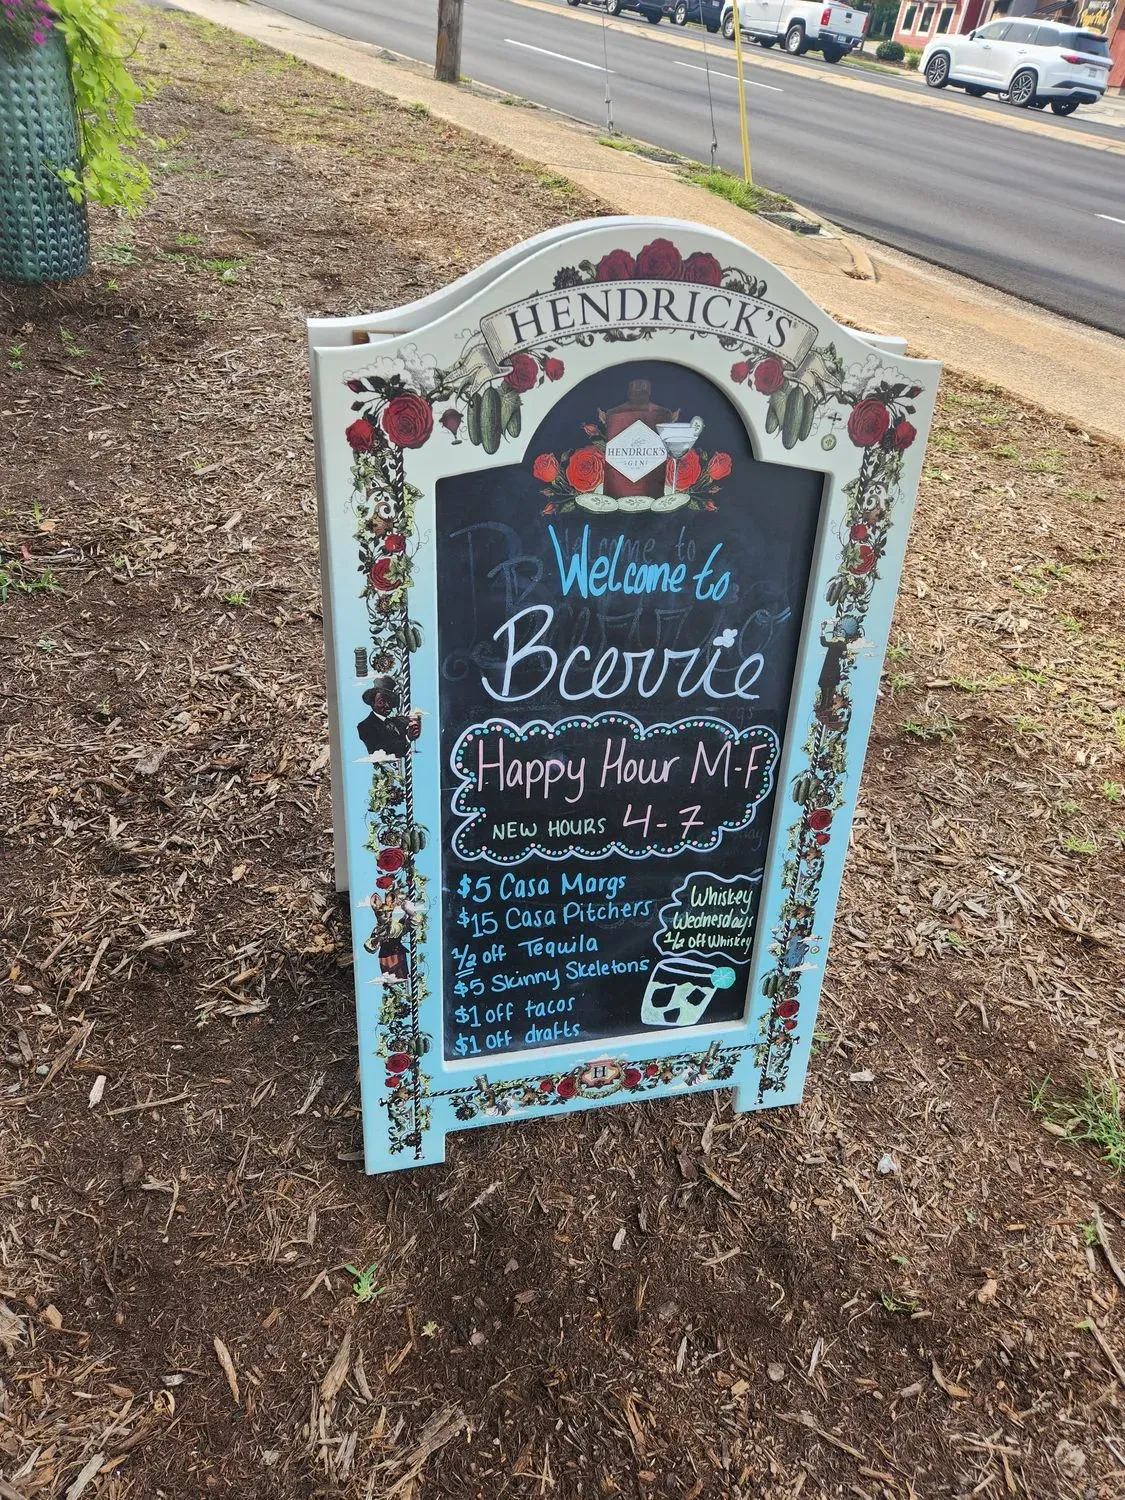 HENDRICK'S
HENDRICK'S
GIN
Welcome to
Bcerrie
Happy Hour M-F
NEW HOURS 4-7
$5 Casa Margs
$15 Casa Pitchers
1/2 off Tequila
$5 Skinny Skeletons
$1 off tacos
$1 off drafts
Whiskey
Wednesdays
1/2 off Whiskey
H